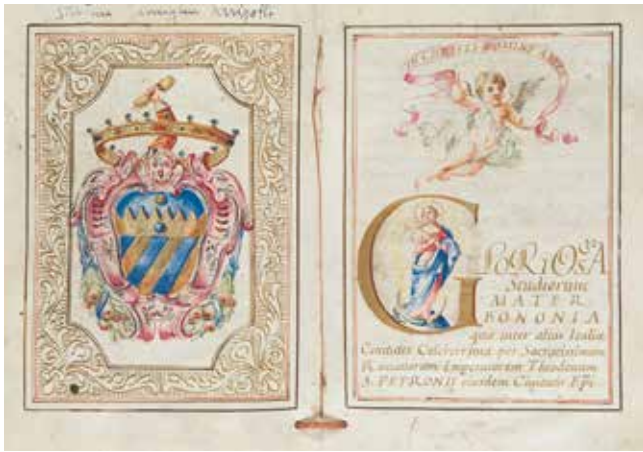 IN CHRISTI NOMINE AMEN
GLORIOSA
Studiorum
MATER
BONONIA
quæ inter alias Italiæ
Civitates Celeberrima per Sacratissimum
Romanorum Imperatorem Theodosium
S. PETRONII eiusdem Civitatis Epi